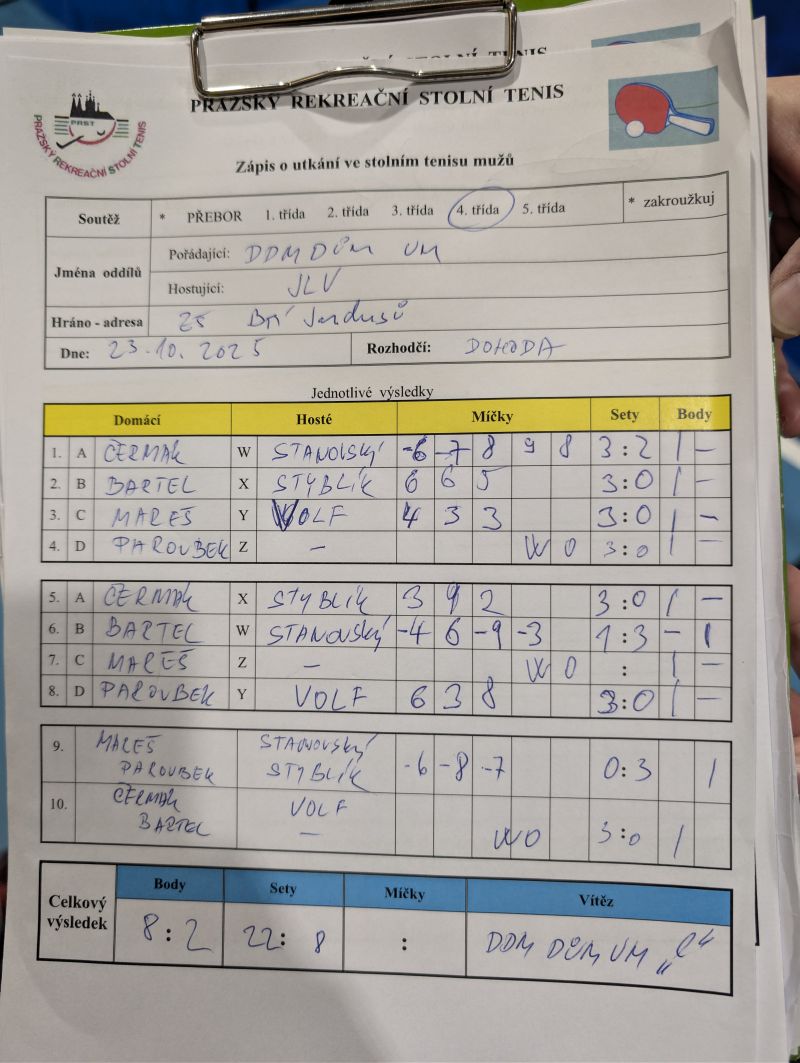 PRAŽSKÝ REKREAČNÍ STOLNÍ TENIS
PRST
PRAŽSKÝ REKREAČNÍ STOLNÍ TENIS
Zápis o utkání ve stolním tenisu mužů
Soutěž * PŘEBOR 1. třída 2. třída 3. třída 4. třída 5. třída * zakroužkuj
Jména oddílů
Pořádající: DDM DŮM UM
Hostující: JLV
Hráno - adresa ZŠ Bří Jandusů
Dne: 23.10. 2025 Rozhodčí: DOHODA
Jednotlivé výsledky
Domácí Hosté Míčky Sety Body
1. A ČERMÁK W STANOVSKÝ -6 -7 8 9 8 3:2 1 -
2. B BARTEL X STYBLÍK 6 6 5 3:0 1 -
3. C MAREŠ Y VOLF 4 3 3 3:0 1 -
4. D PAROUBEK Z - WO 3:0 1 -
5. A ČERMÁK X STYBLÍK 3 9 2 3:0 1 -
6. B BARTEL W STANOVSKÝ -4 6 -9 -3 1:3 - 1
7. C MAREŠ Z - WO : 1 -
8. D PAROUBEK Y VOLF 6 3 8 3:0 1 -
9. MAREŠ STANOVSKÝ
PAROUBEK STYBLÍK -6 -8 -7 0:3 1
10. ČERMÁK VOLF
BARTEL - WO 3:0 1
Celkový výsledek
Body Sety Míčky Vítěz
8:2 22:8 : DDM DŮM UM „C“